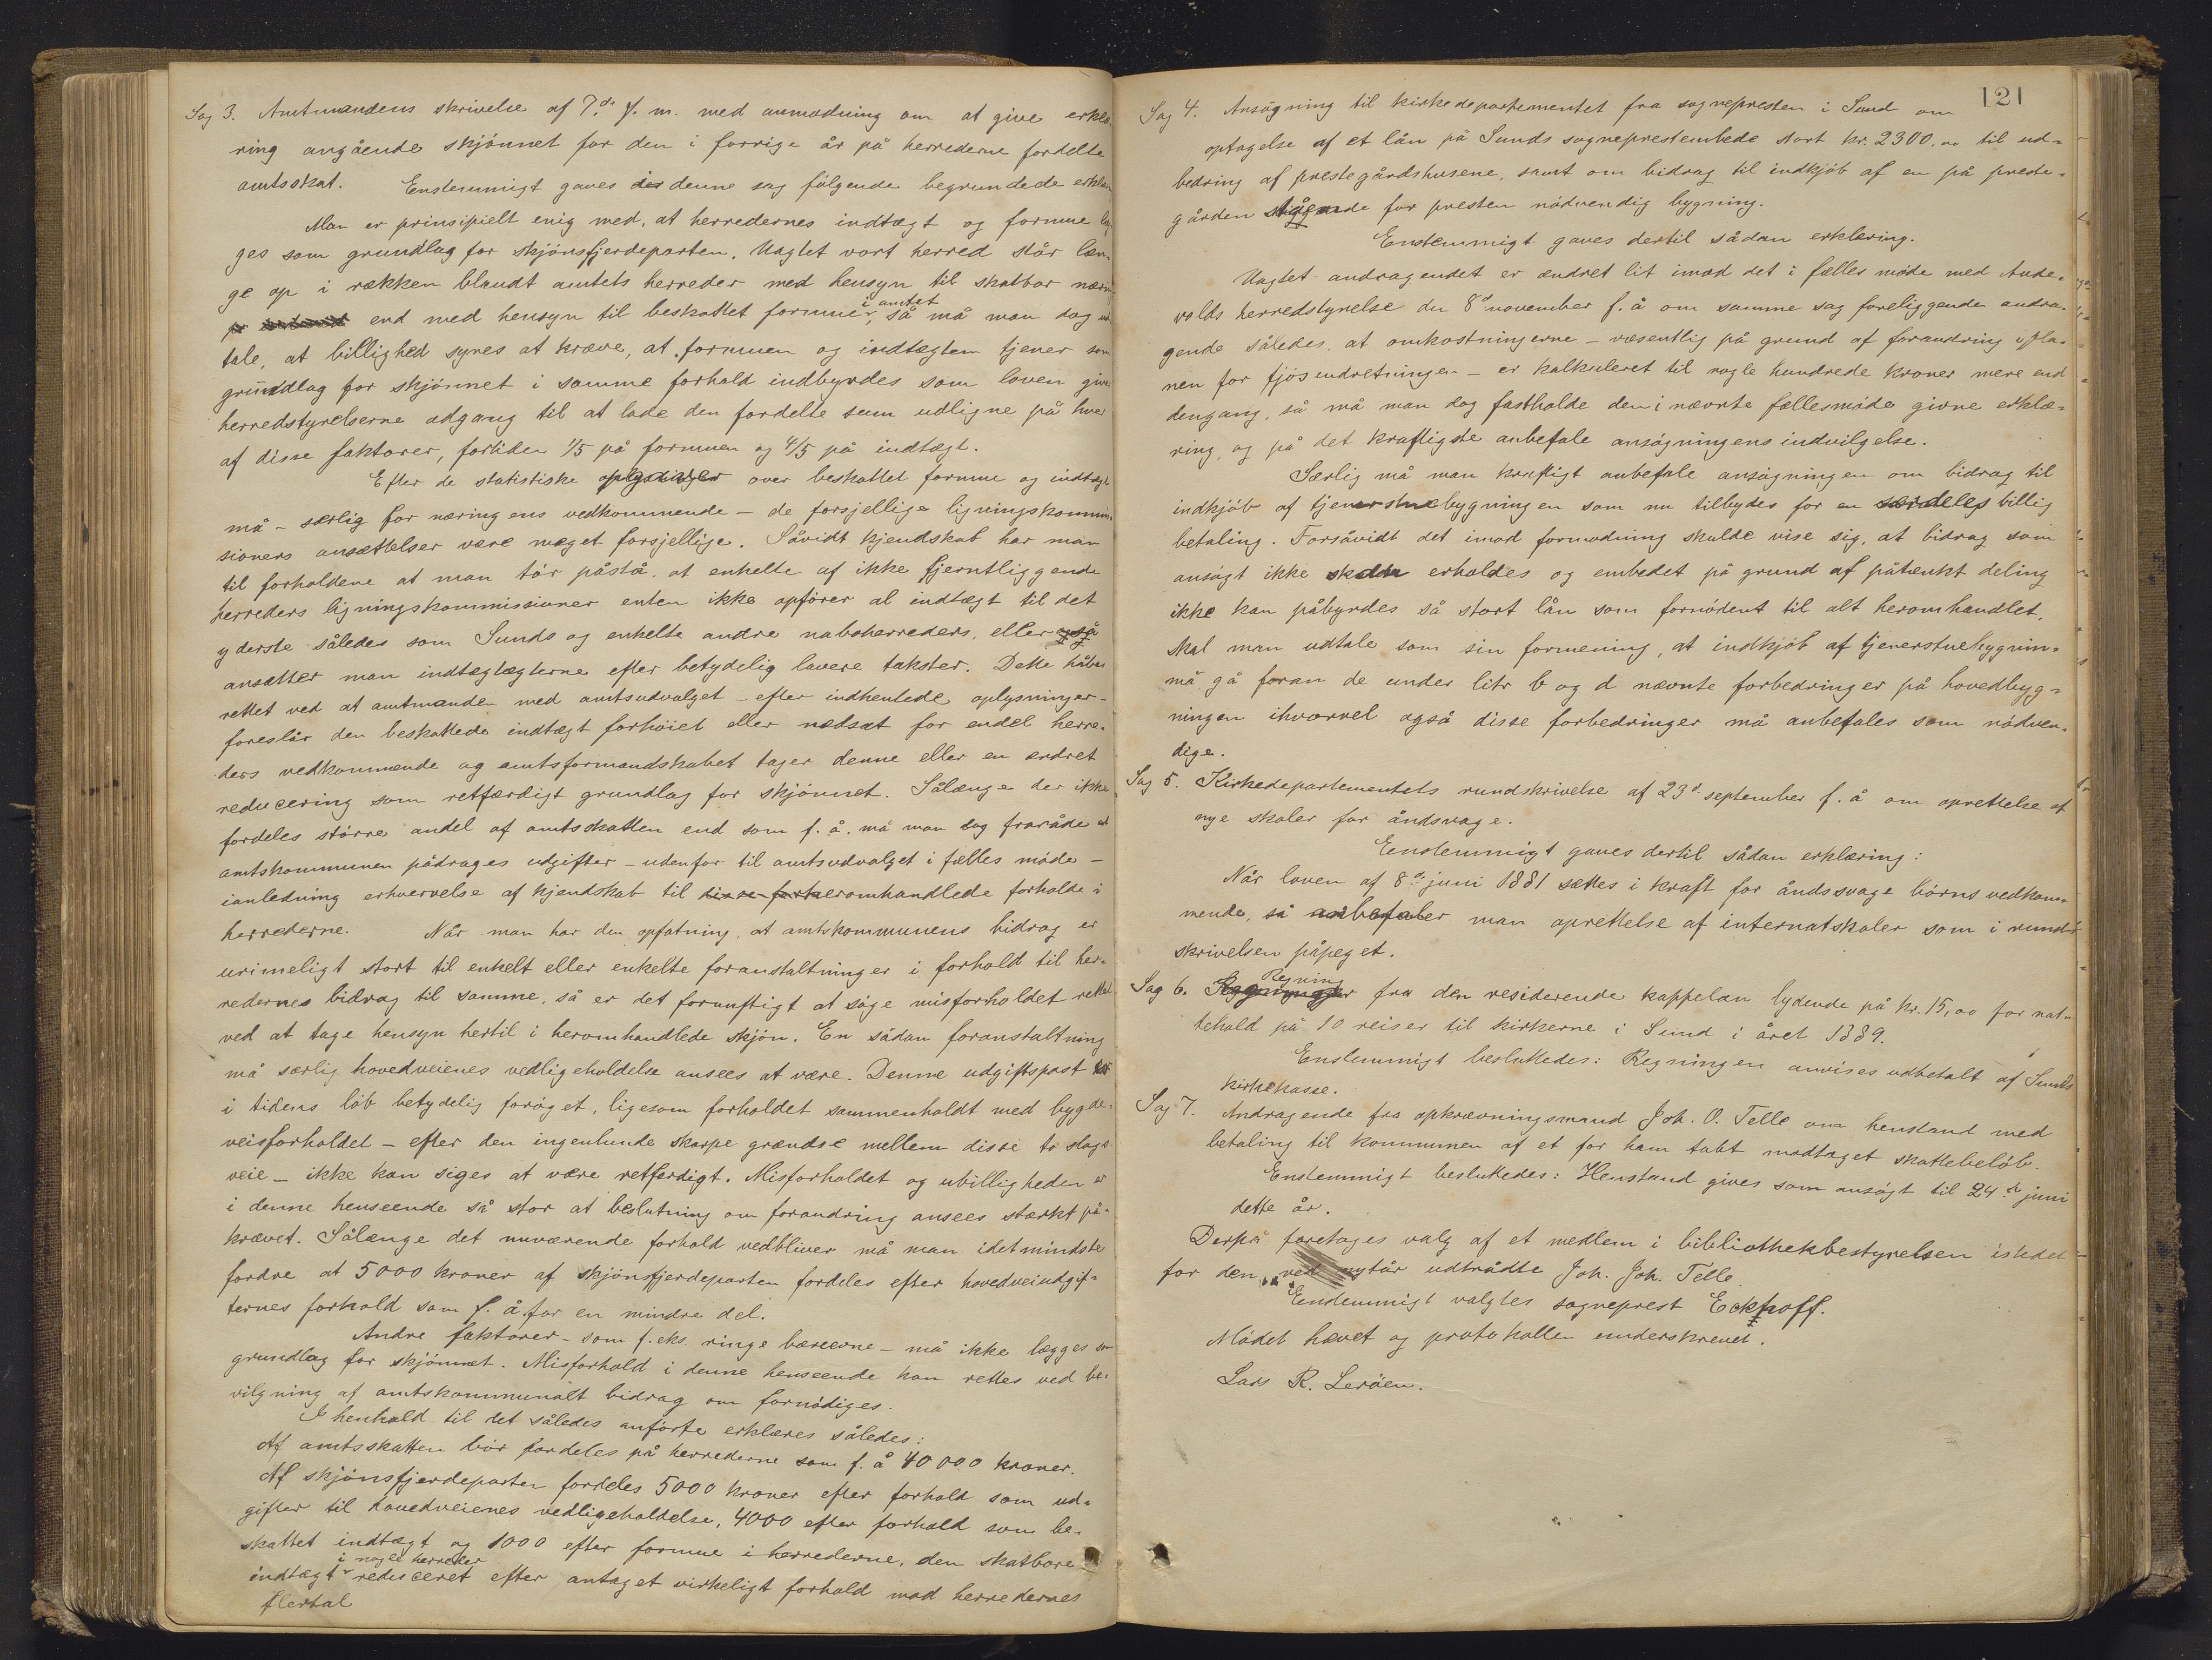 Sag 3. Amtmandens skrivelse af 7de f. m. med anmodning om at give erklæ-
ring angående skjønnet for den i forrige år på herrederne fordelte
amtsskat. Enstemmigt gaves i denne sag følgende begrundede erklæ
Man er prinsipielt enig med, at herredernes indtægt og formue læg
ges som grundlag for skjønsfjerdeparten. Uagtet vort herred står læn-
ge op i rækken blandt amtets herreder med hensyn til skatbar nærin
end med hensyn til beskattet formue i amtet, så må man dog ud
tale, at billighed synes at kræve, at formuen og indtægten tjener som
grundlag for skjønnet i samme forhold indbyrdes som loven giver
herredstyrelserne adgang til at lade den fordelte sum udligne på hver
af disse faktorer, fortiden 1/5 på formuen og 4/5 på indtægt.
Efter de statistiske opgaver over beskattet formue og indtægt
må - særlig for næringens vedkommende - de forsjellige ligningskommis-
sioners ansættelser være meget forsjellige. Såvidt kjendskab har man
til forholdene at man tør påstå, at enkelte af ikke fjerntliggende
herreders ligningskommissioner enten ikke opfører al indtægt til det
yderste således som Sunds og enkelte andre naboherreders, eller også
ansætter man indtægtægterne efter betydelig lavere takster. Dette håbes
rettet ved at amtmanden med amtsudvalget - efter indhentede oplysninger -
foreslår den beskattede indtægt forhøiet eller nedsat for endel herre-
ders vedkommende og amtsformandskabet tager denne eller en endret
reducering som retfærdigt grundlag for skjønnet. Sålænge der ikke
fordeles større andel af amtsskatten end som f. å. må man dog fraråde at
amtskommunen pådrages udgifter - udenfor til amtsudvalget i fælles møde -
ianledning erhvervelse af kjendskab til heromhandlede forholde i
herrederne. Når man har den opfatning, at amtskommunens bidrag er
urimeligt stort til enkelt eller enkelte foranstaltninger i forhold til her-
redernes bidrag til samme, så er det fornuftigt at søge misforholdet rettet
ved at tage hensyn hertil i heromhandlede skjøn. En sådan foranstaltning
må særlig hovedveienes vedligeholdelse ansees at være. Denne udgiftspost
i tidens løb betydelig forøget, ligesom forholdet sammenholdt med bygde-
veisforholdet - efter den ingenlunde skarpe grændse mellem disse to slags
veie - ikke kan siges at være retfærdigt. Misforholdet og ubilligheden er
i denne henseende så stor at beslutning om forandring ansees stærkt på-
krævet. Sålænge det nuværende forhold vedbliver må man idetmindste
fordre at 5000 kroner af skjønsfjerdeparten fordeles efter hovedveiudgif-
ternes forhold som f. å. for en mindre del.
Andre faktorer - som f. eks. ringe bæreevne - må ikke lægges som
grundlag for skjønnet. Misforhold i denne henseende kan rettes ved be-
vilgning af amtskommunalt bidrag om fornødiges.
I henhold til det således anførte erklæres således:
Af amtsskatten bør fordeles på herrederne som f. å 40000 kroner.
Af skjønsfjerdeparten fordeles 5000 kroner efter forhold som ud-
gifter til hovedveienes vedligeholdelse, 4000 efter forhold som be-
skattet indtægt og 1000 efter formue i herrederne, den skatbare
indtægt i nogle herreder reduceret efter antaget virkeligt forhold mod herredernes
flertal
121
Sag 4. Ansøgning til kirkedepartementet fra sognepresten i Sund om
optagelse af et lån på Sunds sogneprestembede stort kr. 2300.00 til ud-
bedring af prestegårdshusene, samt om bidrag til indkjøb af en på preste-
gården stående for presten nødvendig bygning.
Enstemmigt gaves dertil sådan erklæring.
Uagtet andragendet er ændret lit imod det i fælles møde med Aude-
volds herredstyrelse den 8de november f. å om samme sag foreliggende andra-
gende således, at omkostningerne - væsentlig på grund af forandring i pla-
nen for fjøsindretningen - er kalkuleret til nogle hundrede kroner mere end
dengang, så må man dog fastholde den i nævnte fællesmøde givne erklæ-
ring, og på det kraftigste anbefale ansøgningens indvilgelse.
Særlig må man kraftigt anbefale ansøgningen om bidrag til
indkjøb af tjenerstuebygningen som nu tilbydes for en særdeles billig
betaling. Forsåvidt det imod formodning skulde vise sig, at bidrag som
ansøgt ikke erholdes og embedet på grund af påtænkt deling
ikke kan påbyrdes så stort lån som fornødent til alt heromhandlet,
skal man udtale som sin formening, at indkjøb af tjenerstuebygnin-
må gå foran de under litr b og d nævnte forbedringer på hovedbyg-
ningen ihvorvel også disse forbedringer må anbefales som nødven-
dige.
Sag 5. Kirkedepartementets rundskrivelse af 23d september f. å om oprettelse af
nye skoler for åndsvage.
Eenstemmigt gaves dertil sådan erklæring:
Når loven af 8de juni 1881 sættes i kraft for åndssvage børns vedkom-
mende, så anbefaler man oprettelse af internatskoler som i rund-
skrivelsen påpeget.
Sag 6. Regning fra den residerende kappelan lydende på kr. 15,00 for nat-
tehold på 10 reiser til kirkerne i Sund i året 1889.
Enstemmigt besluttedes: Regningen anvises udbetalt af Sunds
kirkekasse.
Sag 7. Andragende fra opkrævningsmand Joh. O. Telle om henstand med
betaling til kommunen af et for ham tabt modtaget skattebeløb.
Enstemmigt besluttedes: Henstand gives som ansøgt til 24de juni
dette år.
Derpå foretages valg af et medlem i bibliothekbestyrelsen istedet
for den ved nytår udtrådte Joh. Joh. Telle.
Eenstemmigt valgtes sogneprest Eckhoff.
Mødet hævet og protokollen underskrevet.
Lars R. Lerøen.